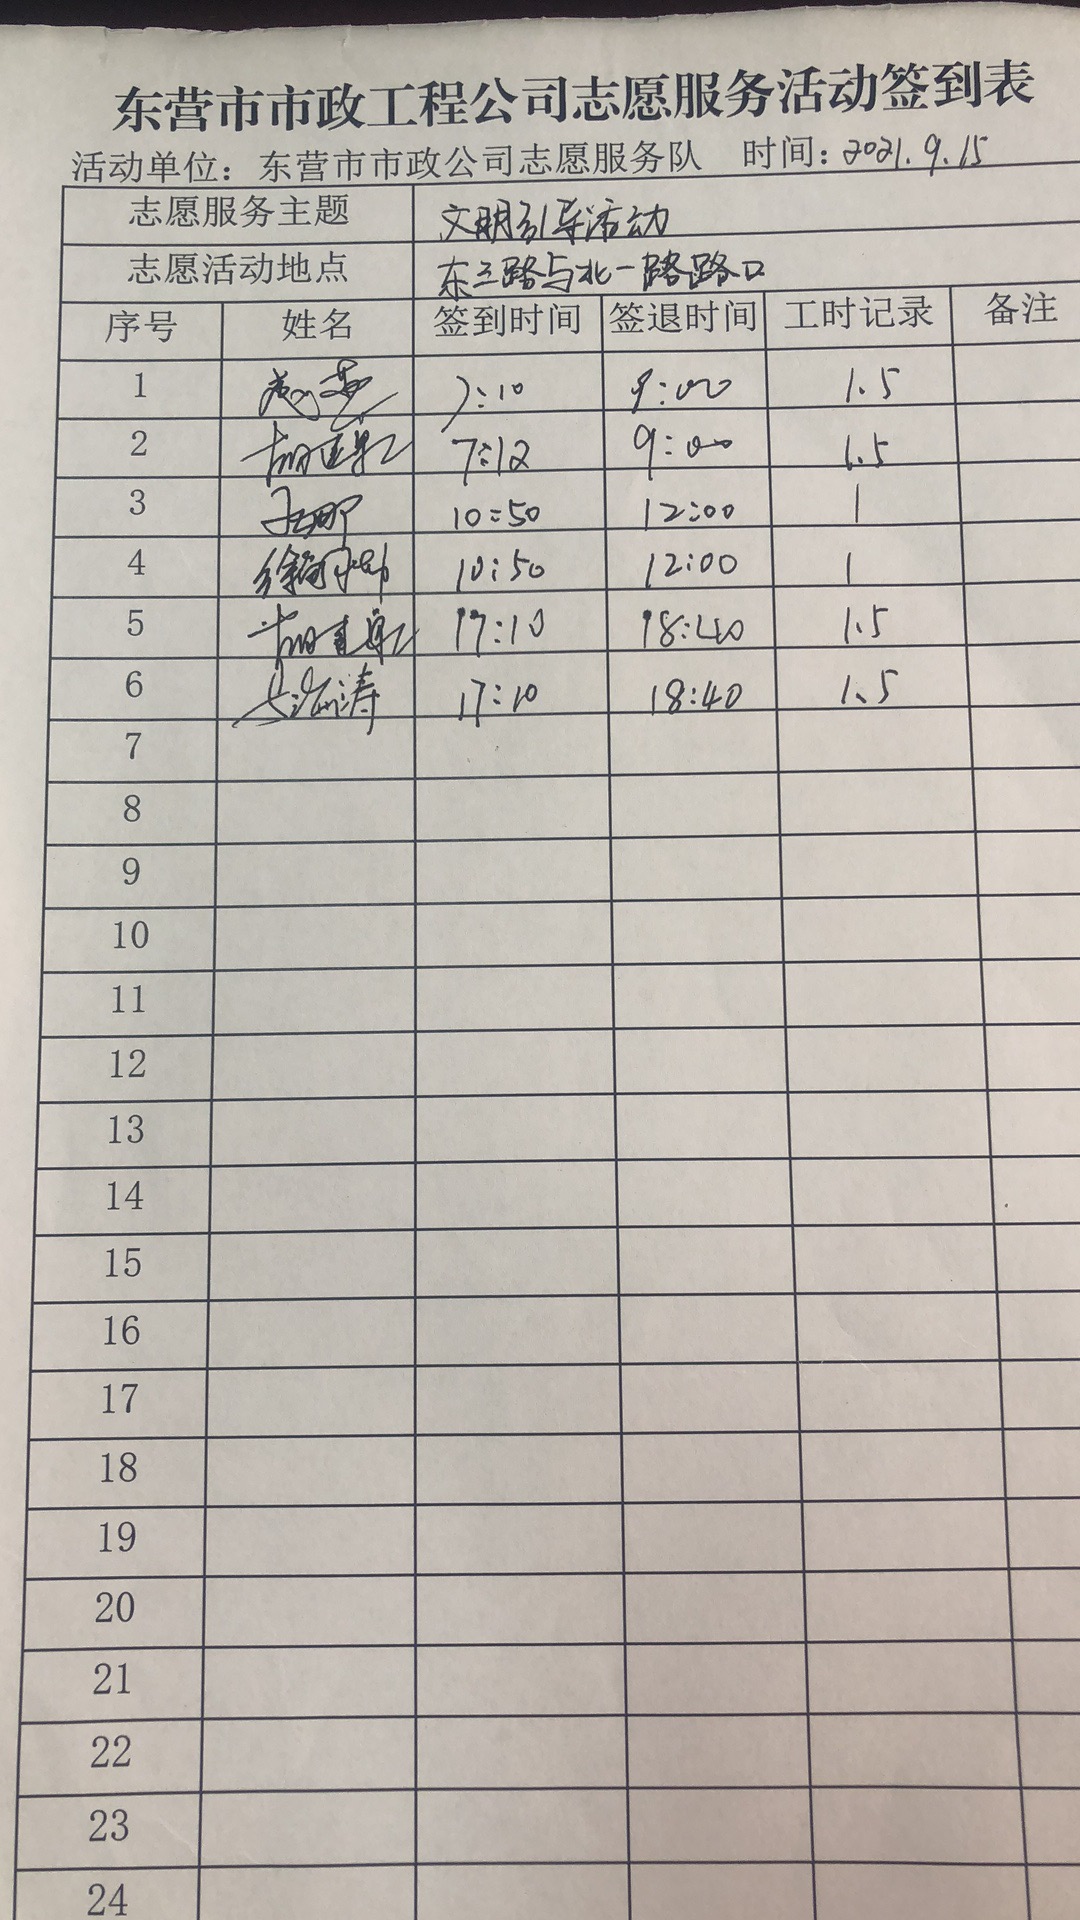 东营市市政工程公司志愿服务活动签到表
活动单位：东营市市政公司志愿服务队 时间：2021.9.15
志愿服务主题 文明引导活动
志愿活动地点 东三路与北一路路口
序号 姓名 签到时间 签退时间 工时记录 备注
1 7:10 9:00 1.5
2 7:12 9:00 1.5
3 10:50 12:00 1
4 10:50 12:00 1
5 17:10 18:40 1.5
6 17:10 18:40 1.5
7
8
9
10
11
12
13
14
15
16
17
18
19
20
21
22
23
24